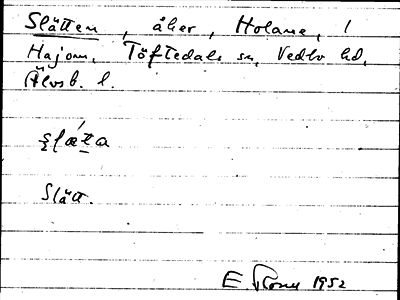 Slätten, åker, Holane, 1
Hajom, Töftedals sn, Vedbo hd,
Älvsb. l.
Slätt.
E. 1952